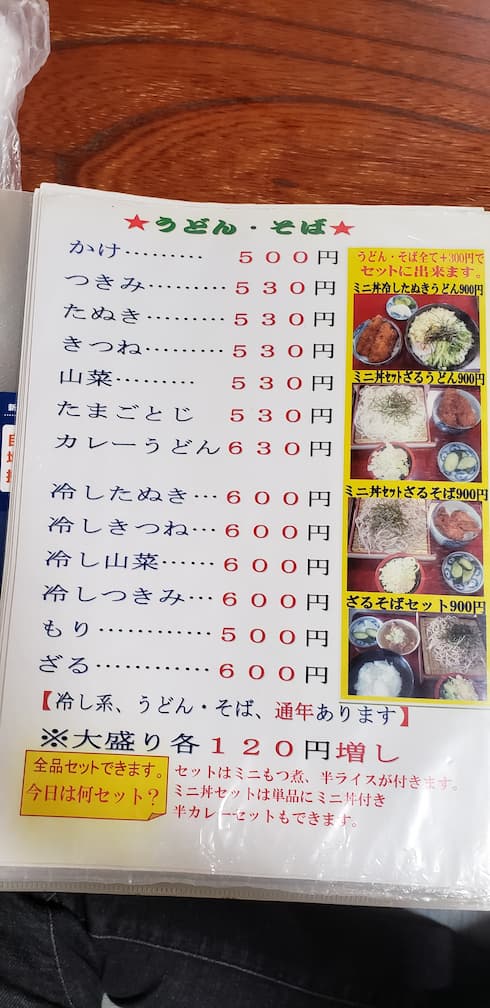 ★うどん・そば★
かけ………500円
つきみ…………530円
たぬき…………530円
きつね…………530円
山菜………530円
たまごとじ　530円
カレーうどん630円
冷したぬき…600円
冷しきつね…600円
冷し山菜……600円
冷しつきみ…600円
もり…………500円
ざる…………600円
【冷し系、うどん・そば、通年あります】
※大盛り各120円増し
全品セットできます。
今日は何セット？
セットはミニもつ煮、半ライスが付きます。
ミニ丼セットは単品にミニ丼付き
半カレーセットもできます。
うどん・そば全て+300円で
セットに出来ます。
ミニ丼冷したぬきうどん900円
ミニ丼セットざるうどん900円
ミニ丼セットざるそば900円
ざるそばセット900円